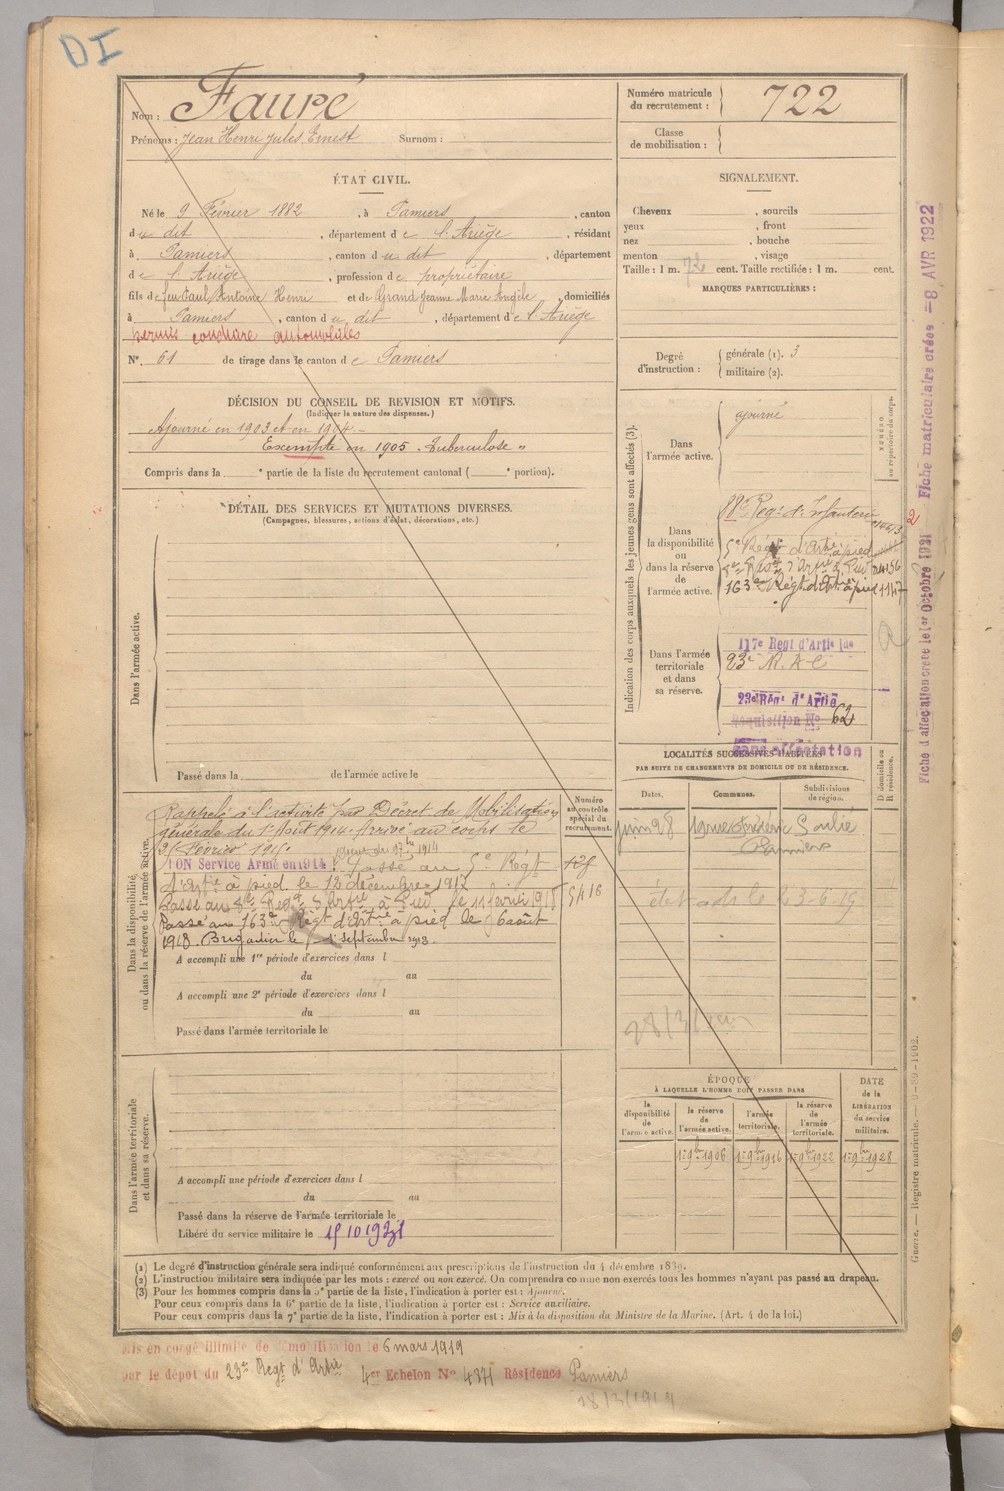 DI
Nom : Fauré
Prénoms : Jean Henri Jules Ernest Surnom :
Numéro matricule du recrutement : 722
Classe de mobilisation :
ÉTAT CIVIL.
Né le 9 Février 1882, à Pamiers, canton
du dit, département de l'Ariège, résidant
à Pamiers, canton du dit, département
de l'Ariège, profession de propriétaire
fils de feu Paul Antoine Henri et de Grand Jeanne Marie Angèle, domiciliés
à Pamiers, canton du dit, département de l'Ariège
permis conduire automobiles
N°. 61 de tirage dans le canton de Pamiers
SIGNALEMENT.
Cheveux , sourcils
yeux , front
nez , bouche
menton , visage
Taille : 1 m. 72 cent. Taille rectifiée : 1 m. cent.
MARQUES PARTICULIÈRES :
Degré d'instruction : générale (1). 3
militaire (2).
DÉCISION DU CONSEIL DE REVISION ET MOTIFS.
(Indiquer la nature des dispenses.)
Ajourné en 1903 et en 1904.-
Exempté en 1905 "Tuberculose"
Compris dans la e partie de la liste du recrutement cantonal ( e portion).
DÉTAIL DES SERVICES ET MUTATIONS DIVERSES.
(Campagnes, blessures, actions d'éclat, décorations, etc.)
Dans l'armée active.
Passé dans la de l'armée active le
Indication des corps auxquels les jeunes gens sont affectés (3).
NUMÉRO au répertoire du corps.
Dans l'armée active.
ajourné
Dans la disponibilité ou dans la réserve de l'armée active.
88e Régt d'Infanterie
5e Régt d'Artie à pied
163e Régt d'Artie à pied 1147
Dans l'armée territoriale et dans sa réserve.
117e Regt d'Artie lde
23e R.A.C
23e Régt d'Artie
62
sans affectation
Fiche d'affectation créée le 1er Octobre 1921 - Fiche matriculaire créée = 8 AVR 1922
LOCALITÉS SUCCESSIVES HABITÉES
PAR SUITE DE CHANGEMENTS DE DOMICILE OU DE RÉSIDENCE.
Dates. Communes. Subdivisions de région. D domicile ou R résidence.
juin 28 19 rue Frédéric Soulié
Pamiers
Dans la disponibilité ou dans la réserve de l'armée active.
Numéro au contrôle spécial du recrutement.
Rappelé à l'activité par Décret de Mobilisation
générale du 1er Août 1914. Arrivé au corps le
Février 1915.
BON Service Armé en 1914. Passé au 5e Régt
d'Artie à pied le 12 décembre 1917
5416
Passé au 163e Régt d'Artie à pied le 6 août
1918. Brigadier le 1er septembre 1918.
A accompli une 1re période d'exercices dans l
du au
A accompli une 2e période d'exercices dans l
du au
Passé dans l'armée territoriale le
Dans l'armée territoriale et dans sa réserve.
A accompli une période d'exercices dans l
du au
Passé dans la réserve de l'armée territoriale le
Libéré du service militaire le
ÉPOQUE
À LAQUELLE L'HOMME DOIT PASSER DANS
la disponibilité de l'armée active. la réserve de l'armée active. l'armée territoriale. la réserve de l'armée territoriale.
DATE de la LIBÉRATION du service militaire.
1er 9bre 1906 1er 9bre 1916 1er 9bre 1922 1er 9bre 1928
(1) Le degré d'instruction générale sera indiqué conformément aux prescriptions de l'instruction du 4 décembre 1889.
(2) L'instruction militaire sera indiquée par les mots : exercé ou non exercé. On comprendra comme non exercés tous les hommes n'ayant pas passé au drapeau.
(3) Pour les hommes compris dans la 5e partie de la liste, l'indication à porter est : Ajourné.
Pour ceux compris dans la 6e partie de la liste, l'indication à porter est : Service auxiliaire.
Pour ceux compris dans la 7e partie de la liste, l'indication à porter est : Mis à la disposition du Ministre de la Marine. (Art. 4 de la loi.)
Guerre. — Registre matricule.
Mis en congé illimité de démobilisation le 6 mars 1919
par le dépot du 23me Régt d'Artie 4er Echelon N° 4871 Résidence Pamiers
28/2/1919